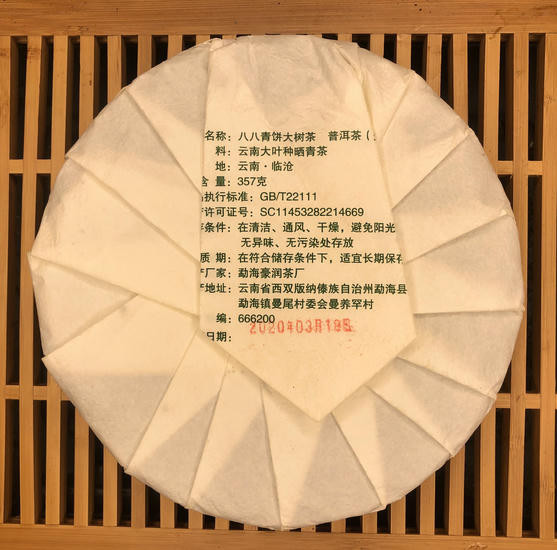 名称：八八青饼大树茶 普洱茶（
料：云南大叶种晒青茶
地：云南·临沧
含量：357克
执行标准：GB/T22111
许可证号：SC11453282214669
条件：在清洁、通风、干燥，避免阳光
无异味、无污染处存放
质期：在符合储存条件下，适宜长期保存
产厂家：勐海豪润茶厂
产地址：云南省西双版纳傣族自治州勐海县
勐海镇曼尾村委会曼养罕村
编：666200
日期：2020年03月18日